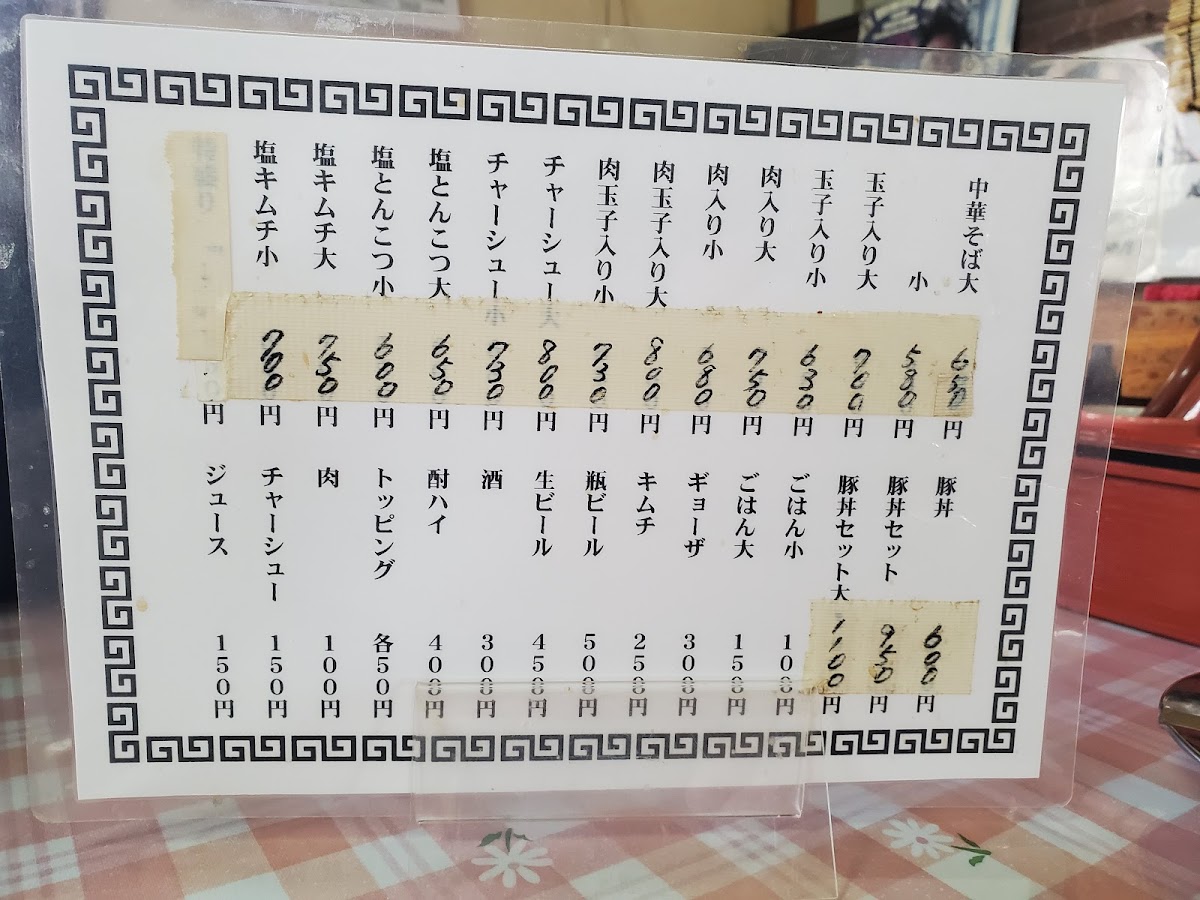 中華そば大 650円
小 580円
玉子入り大 700円
玉子入り小 630円
肉入り大 750円
肉入り小 680円
肉玉子入り大 800円
肉玉子入り小 730円
チャーシュー大 800円
チャーシュー小 730円
塩とんこつ大 650円
塩とんこつ小 600円
塩キムチ大 750円
塩キムチ小 700円
円
豚丼 600円
豚丼セット 950円
豚丼セット大 1100円
ごはん小 100円
ごはん大 150円
ギョーザ 300円
キムチ 250円
瓶ビール 500円
生ビール 450円
酒 300円
酎ハイ 400円
トッピング 各50円
肉 100円
チャーシュー 150円
ジュース 150円